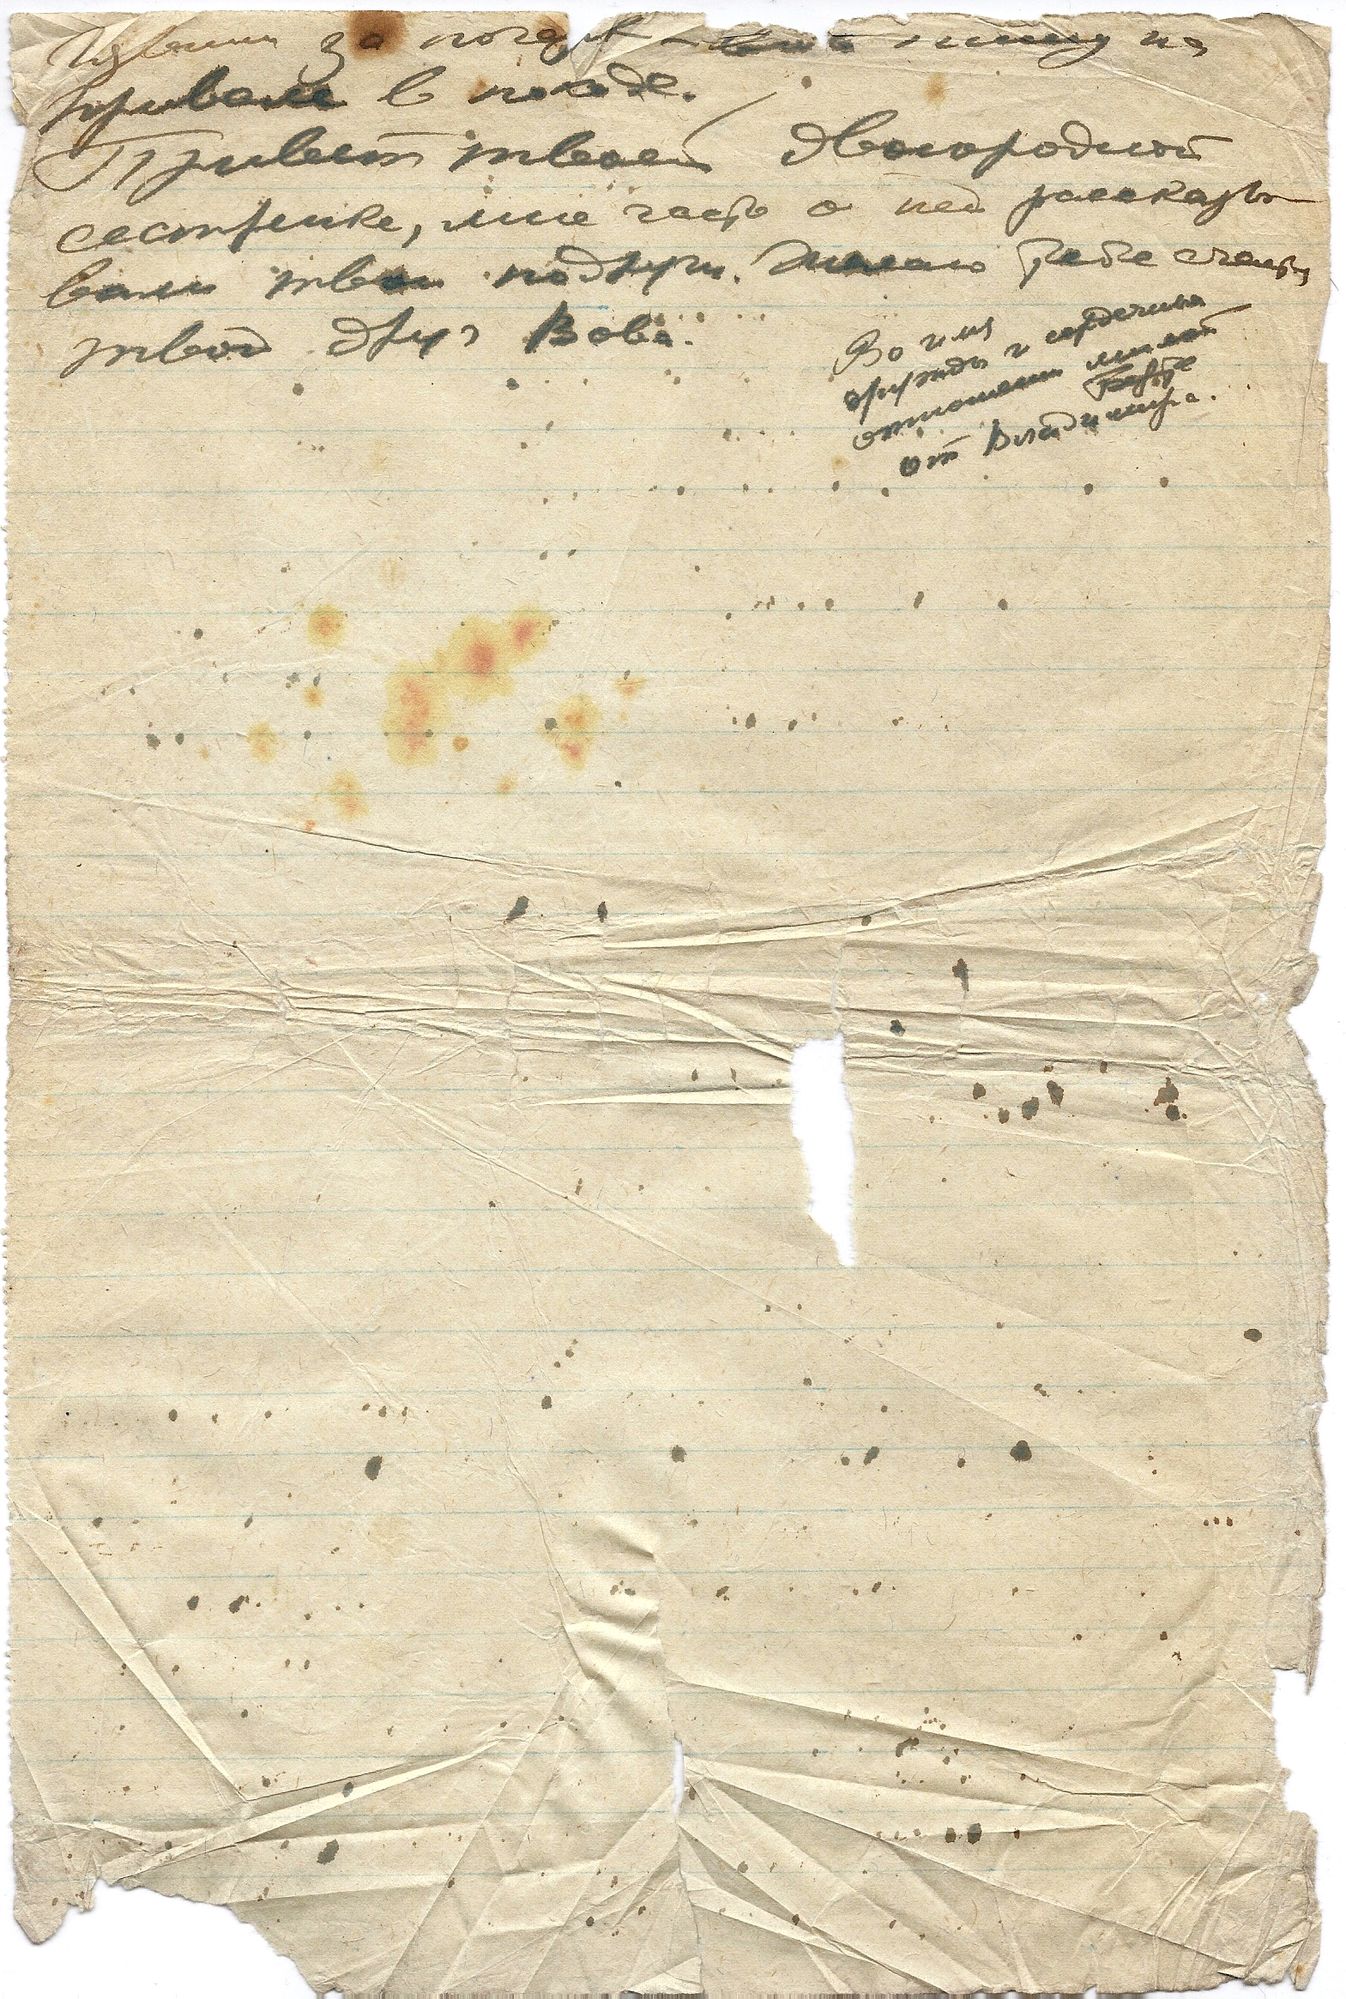 Извини за почерк - пишу на
привале в походе.
Привет твоей двоюродной
сестренке, мне часто о ней рассказы
вали твои подруги. Желаю тебе счастья
твой друг Вова.
Во имя
дружбы и сердечных
отношений милой
от Владимира.